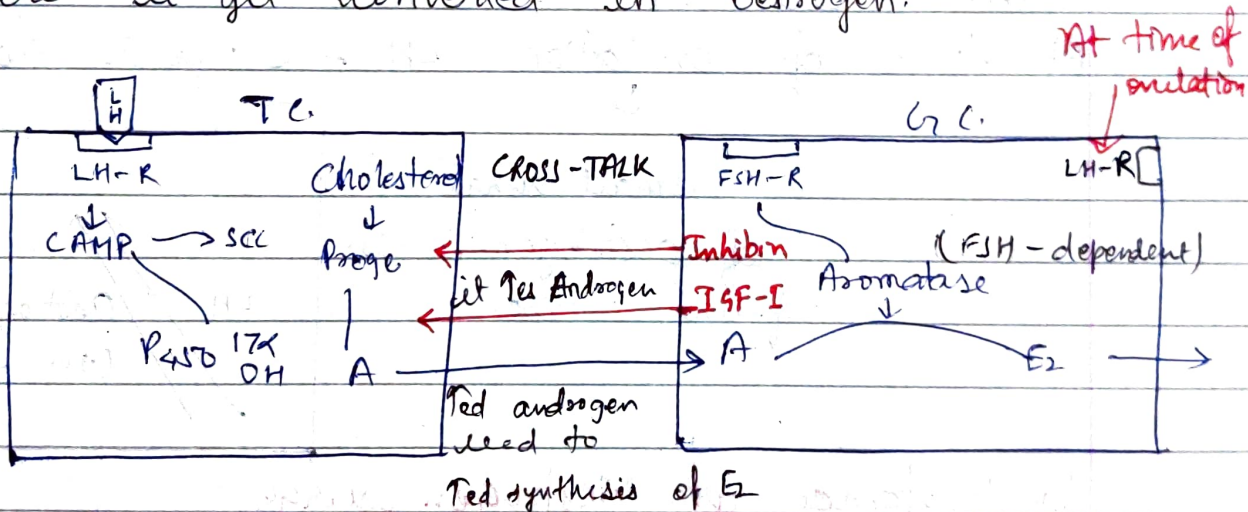 so get converted in oestrogen.
At time of
ovulation
LH
T C.
G C.
LH-R
Cholesterol
CROSS-TALK
FSH-R
LH-R
CAMP → SCC
Proge
Inhibin
(FSH-dependent)
it ↑es Androgen
IGF-I
Aromatase
P450 17α
OH
A
A
E2
↑ed androgen
lead to
↑ed synthesis of E2